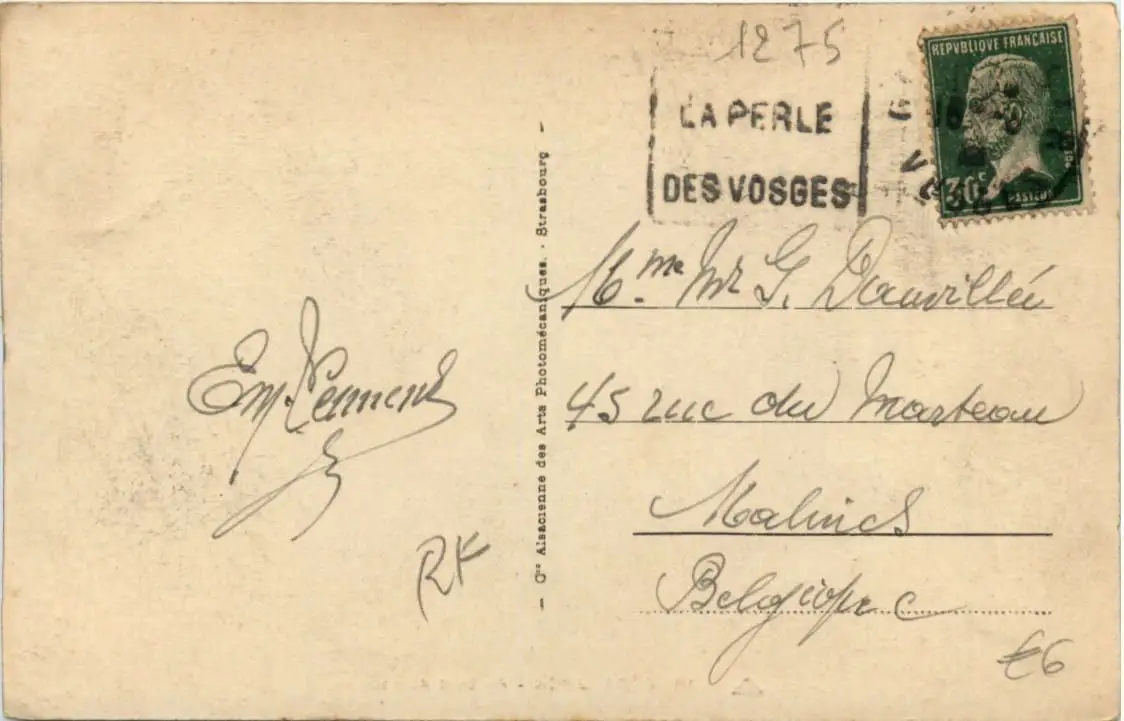 1275
LA PERLE
DES VOSGES
REPVBLIQVE FRANÇAISE
30c
PASTEUR
VOSGES
Mme Mr G. Dauvillée
45 rue du Marteau
Malines
Belgique
Em.
RK
— Cie Alsacienne des Arts Photomécaniques. - Strasbourg —
€6